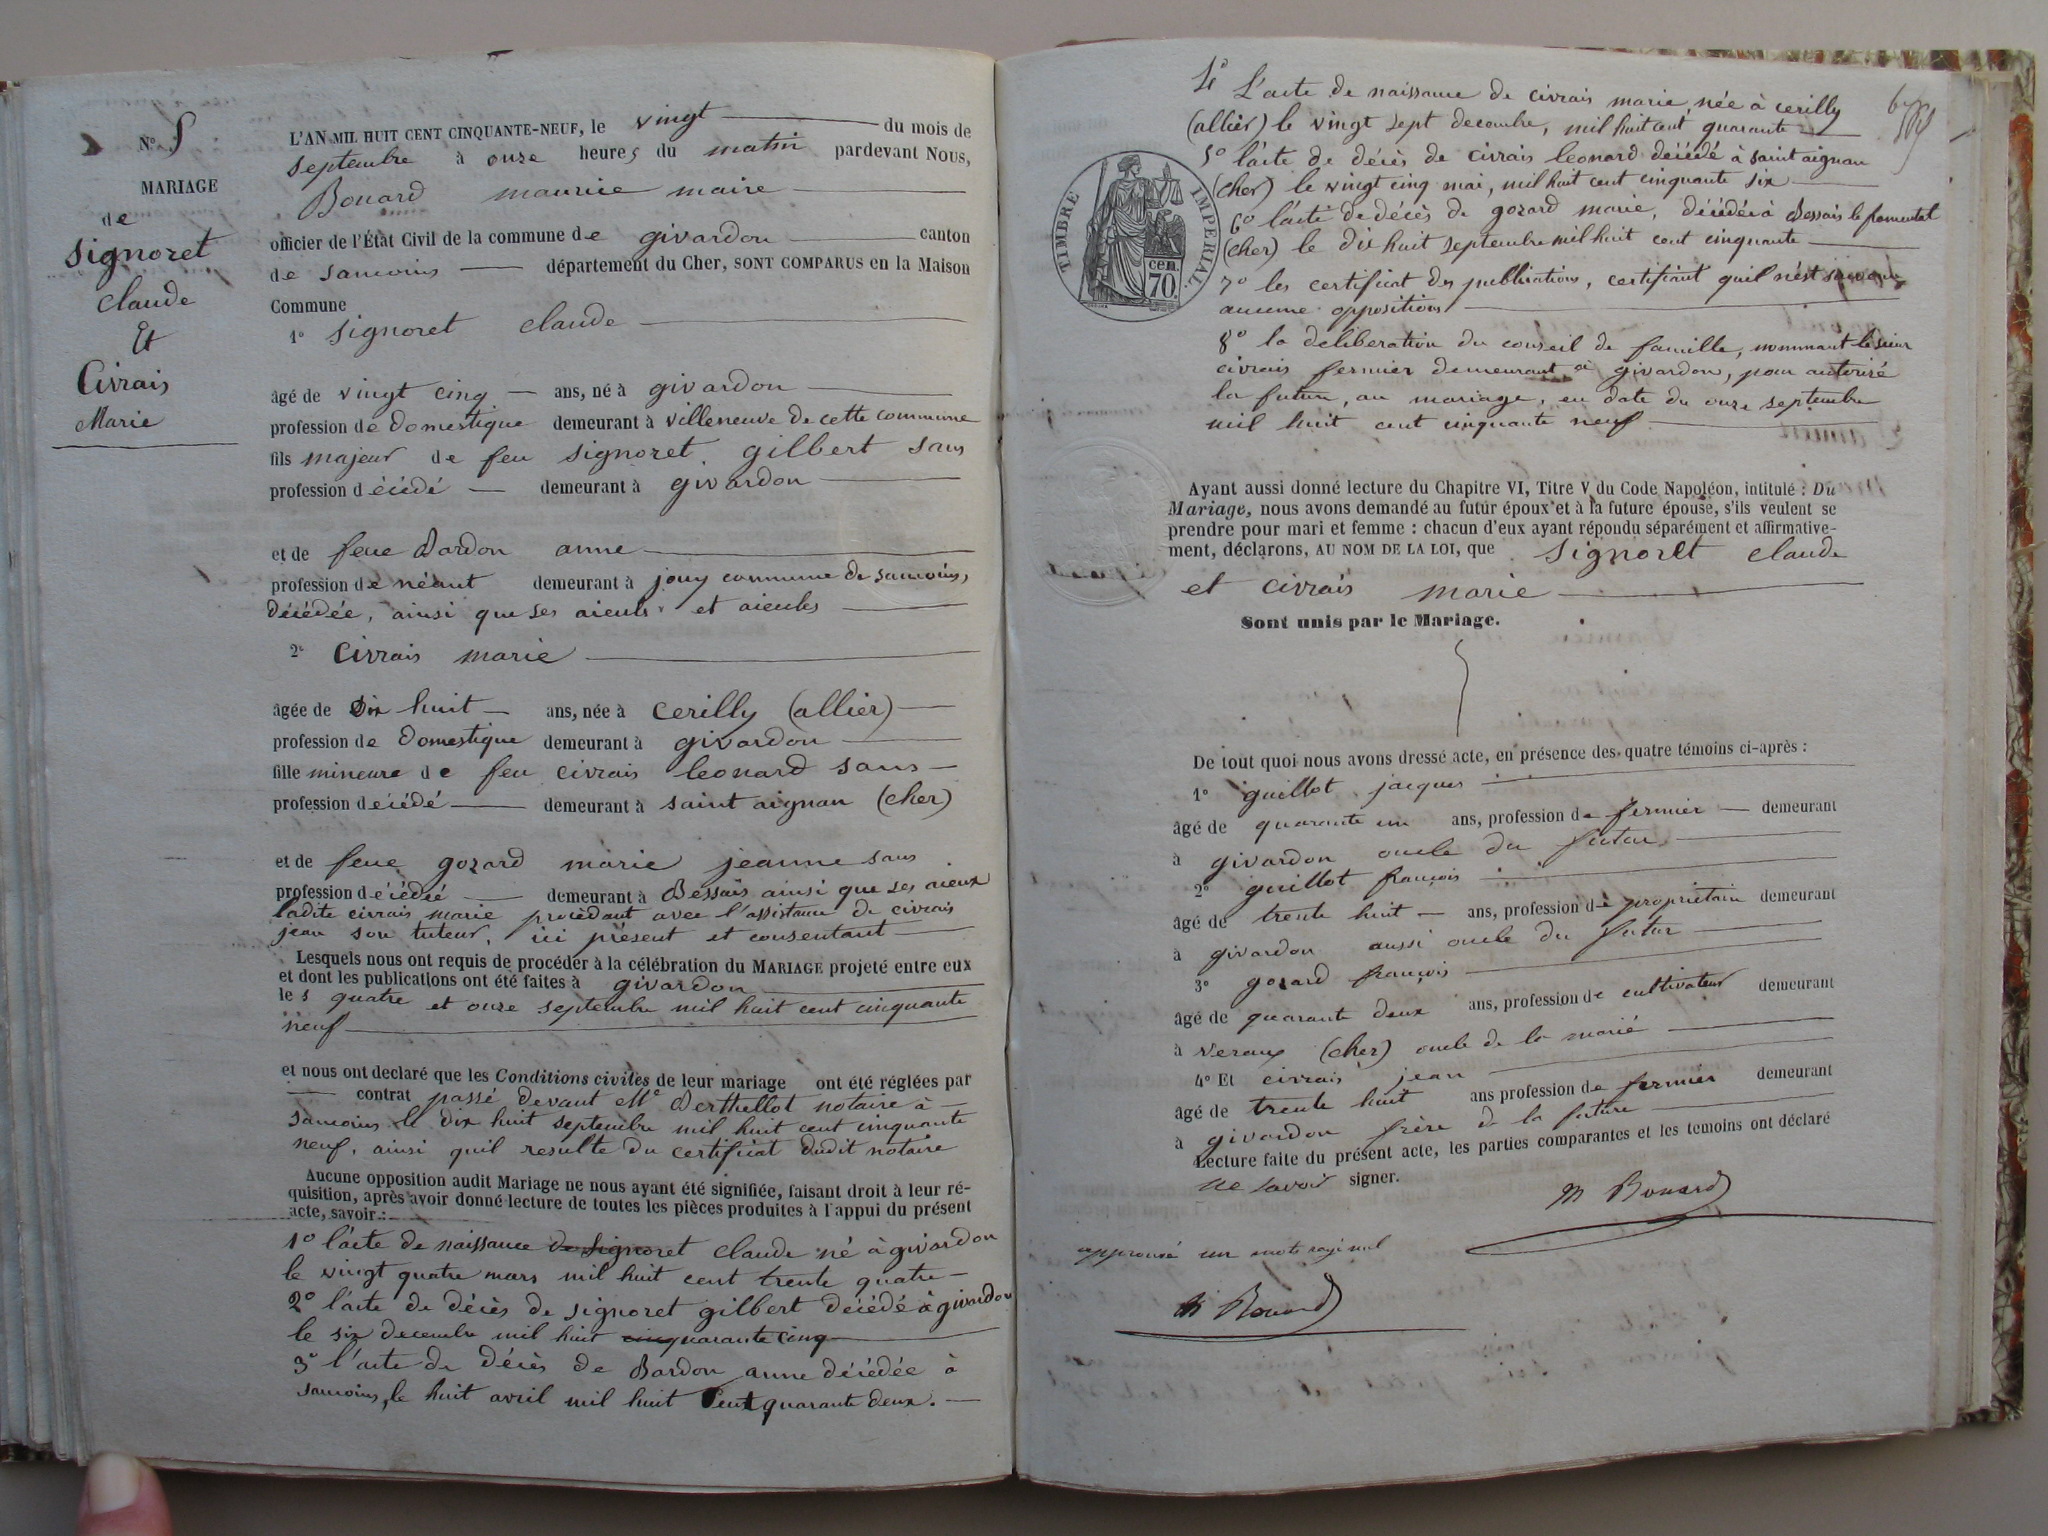 N° 5
MARIAGE
de
Signoret
Claude
Et
Civrais
Marie
L'AN MIL HUIT CENT CINQUANTE-NEUF, le vingt du mois de
septembre à onze heures du matin pardevant NOUS,
Bonard maurice maire
officier de l'État Civil de la commune de givardon canton
de sancoins département du Cher, SONT COMPARUS en la Maison
Commune
1° Signoret claude
âgé de vingt cinq ans, né à givardon
profession de domestique demeurant à villeneuve de cette commune
fils majeur de feu signoret gilbert sans
profession décédé demeurant à givardon
et de feue Bardon anne
profession de néant demeurant à jouy commune de sancoins,
décédée, ainsi que ses aieuls et aieules
2° Civrais marie
âgée de Dix huit ans, née à Cerilly (allier)
profession de domestique demeurant à givardon
fille mineure de feu civrais leonard sans
profession décédé demeurant à saint aignan (cher)
et de feue gozard marie jeanne sans
profession décédée demeurant à Bessais ainsi que ses aieux
ladite civrais marie procédant avec l'assistance de civrais
jean son tuteur, ici présent et consentant
Lesquels nous ont requis de procéder à la célébration du MARIAGE projeté entre eux
et dont les publications ont été faites à givardon
les quatre et onze septembre mil huit cent cinquante
neuf
et nous ont declaré que les Conditions civiles de leur mariage ont été réglées par
contrat passé devant Me Berthellot notaire à
sancoins le dix huit septembre mil huit cent cinquante
neuf, ainsi quil resulte du certificat dudit notaire
Aucune opposition audit Mariage ne nous ayant été signifiée, faisant droit à leur ré-
quisition, après avoir donné lecture de toutes les pièces produites à l'appui du présent
acte, savoir :
1° l'acte de naissance de Signoret claude né à givardon
le vingt quatre mars mil huit cent trente quatre
2° l'acte de décès de signoret gilbert décédé à givardon
le six decembre mil huit quarante cinq
3° l'acte de décès de Bardon anne décédée à
sancoins, le huit avril mil huit Cent quarante deux.
4° L'acte de naissance de civrais marie née à cerilly
(allier) le vingt sept decembre, mil huit cent quarante
5° l'acte de décès de civrais leonard décédé à saint aignan
(cher) le vingt cinq mai, mil huit cent cinquante six
6° l'acte de décès de gozard marie, décédée à Bessais le fromental
(cher) le dix huit septembre mil huit cent cinquante
7° les certificat des publications, certifiant quil n'est survenu
aucune oppositions
8° la deliberation du conseil de famille, nommant le sieur
civrais fermier demeurant à givardon, pour autorisé
la future, au mariage, en date du onze septembre
mil huit cent cinquante neuf
TIMBRE IMPERIAL.
cen.
70.
Ayant aussi donné lecture du Chapitre VI, Titre V du Code Napoléon, intitulé : Du
Mariage, nous avons demandé au futur époux et à la future épouse, s'ils veulent se
prendre pour mari et femme : chacun d'eux ayant répondu séparément et affirmative-
ment, déclarons, AU NOM DE LA LOI, que Signoret claude
et civrais marie
Sont unis par le Mariage.
De tout quoi nous avons dressé acte, en présence des quatre témoins ci-après :
1° guillot jacques
âgé de quarante un ans, profession de fermier demeurant
à givardon oncle du futur
2° guillot françois
âgé de trente huit ans, profession de propriétaire demeurant
à givardon aussi oncle du futur
3° gozard françois
âgé de quarante deux ans, profession de cultivateur demeurant
à veraux (cher) oncle de la marié
4° Et civrais jean
âgé de trente huit ans profession de fermier demeurant
à givardon frère de la future
Lecture faite du présent acte, les parties comparantes et les temoins ont déclaré
ne savoir signer.
M Bonard
approuvé un mots rayé nul
M Bonard